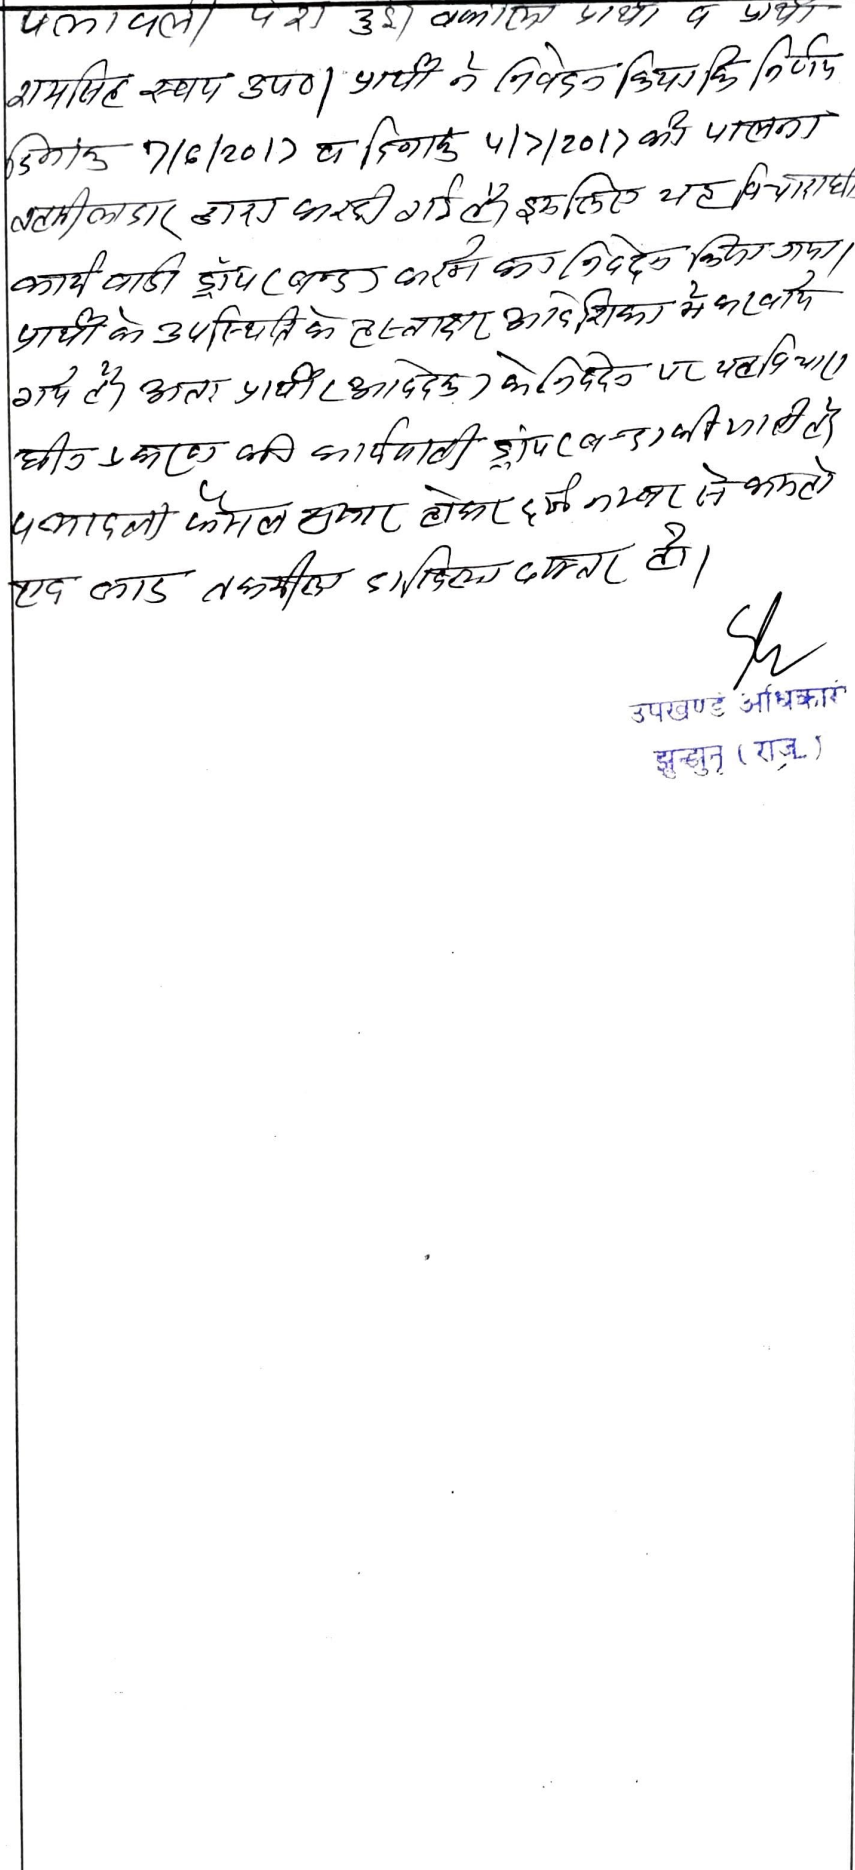 पत्रावली पेश हुई। वकील प्रार्थी व प्रार्थी
रामसिंह स्वयं उप०। प्रार्थी ने निवेदन किया कि निर्णय
दिनांक 7/6/2017 व दिनांक 4/7/2017 की पालना
तहसीलदार द्वारा करदी गई है, इसलिए यह विचाराधी
कार्यवाही ड्रॉप (बन्द) करने का निवेदन किया गया।
प्रार्थी के उपस्थिति के हस्ताक्षर आदेशिका मे करवाये
गये है। अतः प्रार्थी (आवेदक) के निवेदन पर यह विचारा
धीन प्रकरण की कार्यवाही ड्रॉप (बन्द) की जाती है
पत्रावली फैसल शुमार होकर दर्ज नम्बर से कम हो
एवं बाद तकमील दाखिल दफ्तर हो।
उपखण्ड अधिकारी
झुन्झुनू (राज.)